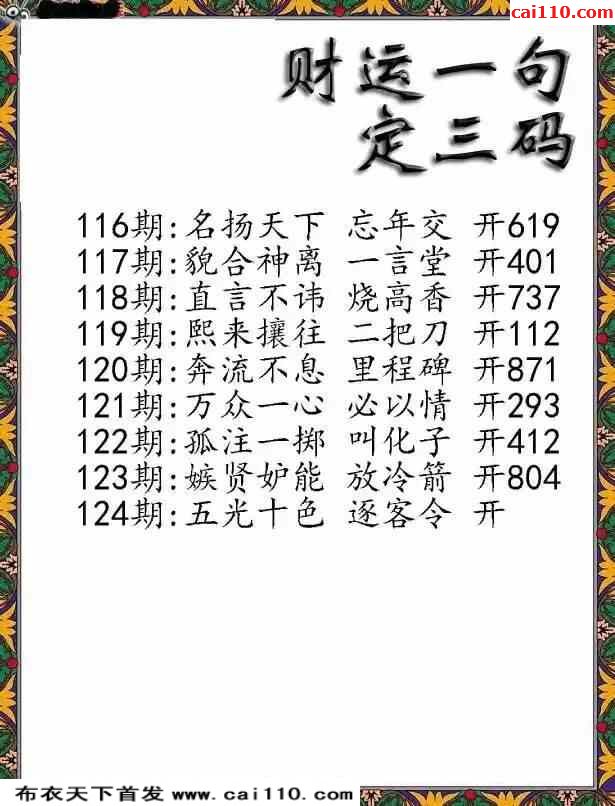 cai110.com
财运一句
定三码
116期:名扬天下 忘年交 开619
117期:貌合神离 一言堂 开401
118期:直言不讳 烧高香 开737
119期:熙来攘往 二把刀 开112
120期:奔流不息 里程碑 开871
121期:万众一心 必以情 开293
122期:孤注一掷 叫化子 开412
123期:嫉贤妒能 放冷箭 开804
124期:五光十色 逐客令 开
布衣天下首发 www.cai110.com